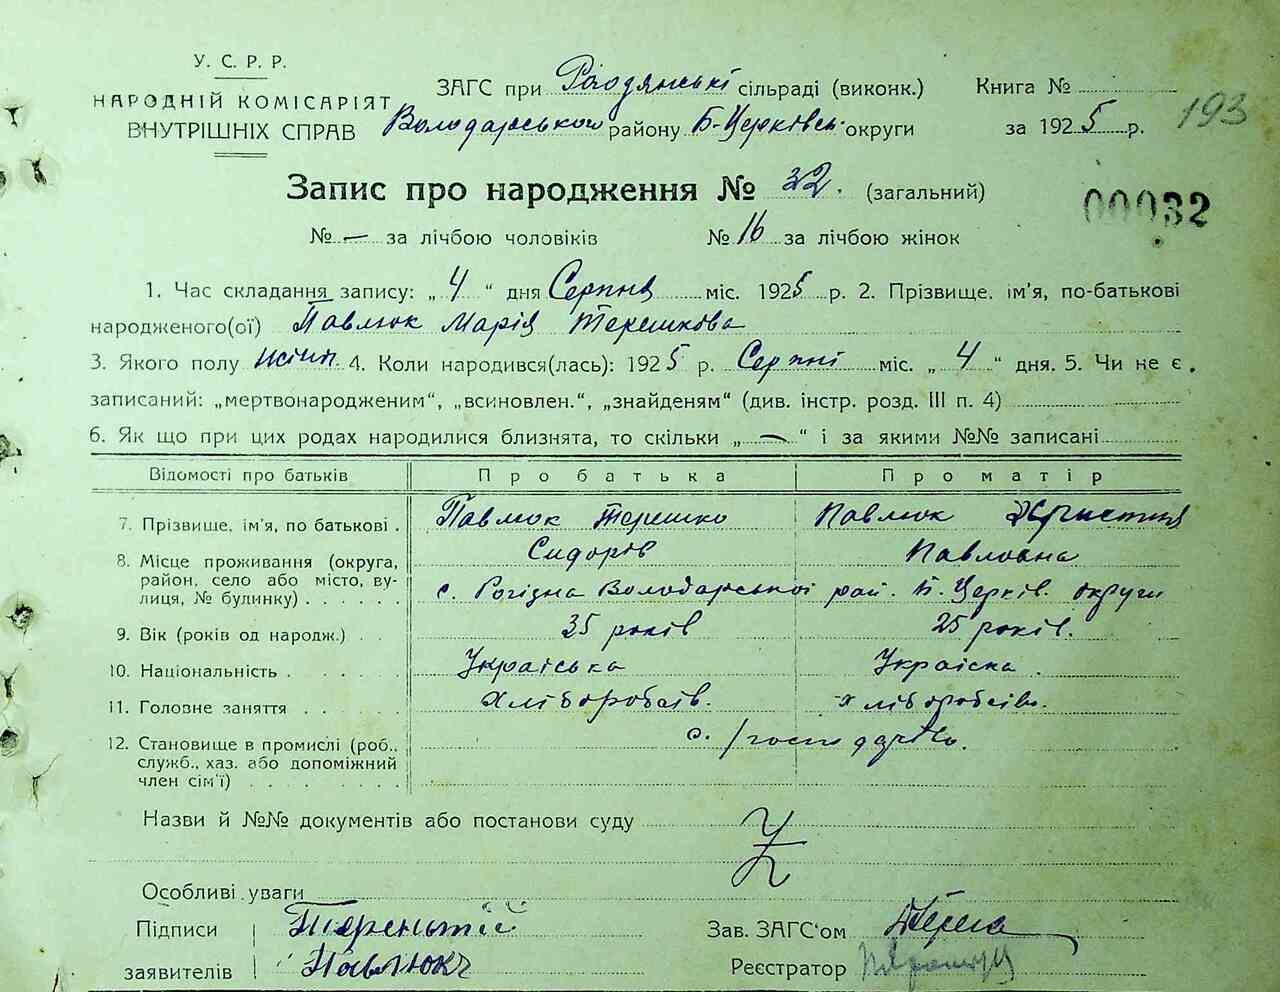 У. С. Р. Р.
НАРОДНІЙ КОМІСАРІЯТ
ВНУТРІШНІХ СПРАВ
ЗАГС при сільраді (виконк.)
Володарського району Б-Церківсь. округи
Книга №
за 1925 р.
193
Запис про народження № 32. (загальний)
00032
№ — за лічбою чоловіків № 16 за лічбою жінок
1. Час складання запису: „ 4 “ дня Серпня міс. 1925 р. 2. Прізвище, ім'я, по-батькові
народженого(ої) Павлюк Марія Терешкова
3. Якого полу жіноч. 4. Коли народився(лась): 1925 р. Серпні міс. „ 4 “ дня. 5. Чи не є
записаний: „мертвонародженим“, „всиновлен.“, „знайденям“ (див. інстр. розд. III п. 4)
6. Як що при цих родах народилися близнята, то скільки „ — “ і за якими №№ записані
Відомості про батьків Про батька Про матір
7. Прізвище, ім'я, по батькові . Павлюк Терешко Павлюк Христина
Сидорів Павловна
8. Місце проживання (округа,
район, село або місто, ву-
лиця, № будинку) . . . . . . с. Рогізна Володарської рай. Б. Церків. округи
9. Вік (років од народж.) . . 35 років 25 років.
10. Національність . . . . . . Украіська Украіска.
11. Головне заняття . . . . . хліборобсів. хліборобсів.
12. Становище в промислі (роб.,
служб., хаз. або допоміжний
член сім'ї) . . . . . . . . . с. /господарство.
Назви й №№ документів або постанови суду
Особливі уваги
Підписи Терентій
заявителів Павлюк
Зав. ЗАГС'ом
Реєстратор